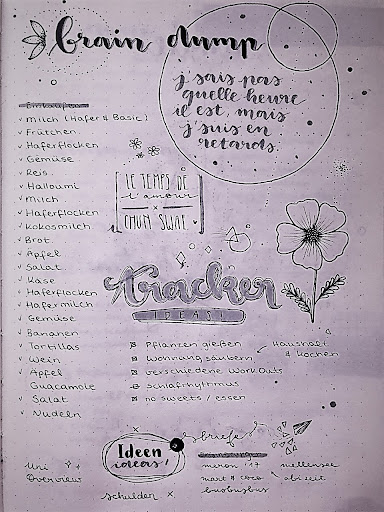 brain dump
j'sais pas
quelle heure
il est, mais
j'suis en
retards.
Einkaufen
Milch (Hafer & Basic)
Früchten
Haferflocken
Gemüse
Reis
Halloumi
Milch
Haferflocken
Kokosmilch
Brot
Äpfel
Salat
Käse
Haferflocken
Hafermilch
Gemüse
Bananen
Tortillas
Wein
Äpfel
Guacamole
Salat
Nudeln
LE TEMPS DE
l'amour
x
CHUM SWAE
tracker
IDEAS!
Pflanzen gießen
Wohnung säubern
verschiedene Workouts
schlafrhythmus
no sweets / essen
Haushalt
& kochen
Ideen
ideeas!
briefe
meron '17
mart & coco
busbusbus
mellensee
abi zeit
Uni
Overview
schulden